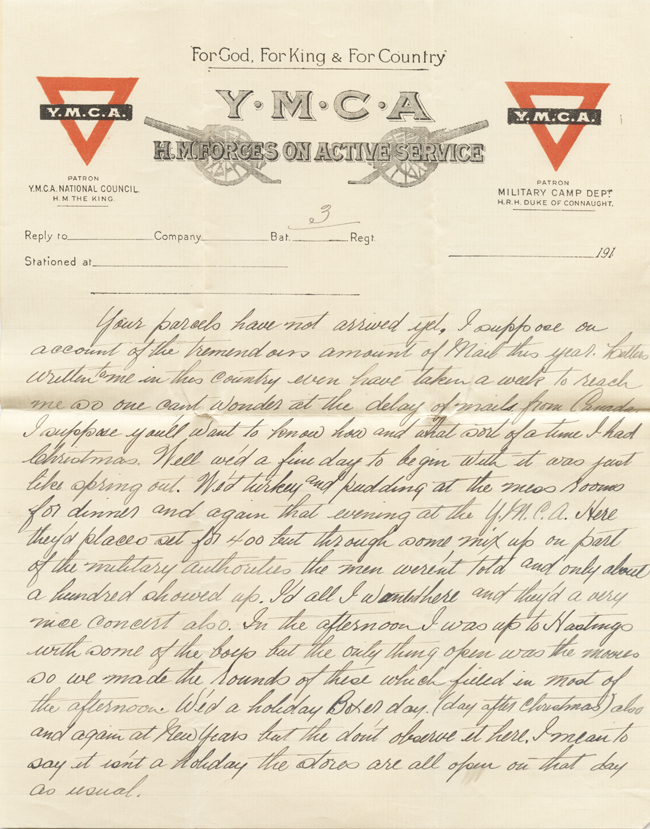 For God, For King & For Country
Y·M·C·A
H.M. FORCES ON ACTIVE SERVICE
Y.M.C.A.
PATRON
Y.M.C.A. NATIONAL COUNCIL.
H.M. THE KING.
Y.M.C.A.
PATRON
MILITARY CAMP DEPT.
H.R.H. DUKE OF CONNAUGHT.
3
Reply to Company Bat. Regt.
Stationed at 191
Your parcels have not arrived yet, I suppose on
account of the tremendous amount of Mail this year. Letters
written me in this country even have taken a week to reach
me so one cant wonder at the delay of mails from Canada.
I suppose youll want to know how and what sort of a time I had
Christmas. Well we'd a fine day to begin with it was just
like spring out. We'd turkey and pudding at the mess rooms
for dinner and again that evening at the Y.M.C.A. Here
they'd places set for 400 but through some mix up on part
of the military authorities the men weren't told and only about
a hundred showed up. I'd all I wanted there and they'd a very
nice concert also. In the afternoon I was up to Hastings
with some of the boys but the only thing open was the movies
so we made the rounds of these which filled in most of
the afternoon. We'd a holiday Boxer day. (day after Christmas) also
and again at New Years but the don't observe it here. I mean to
say it isn't a holiday the stores are all open on that day
as usual.